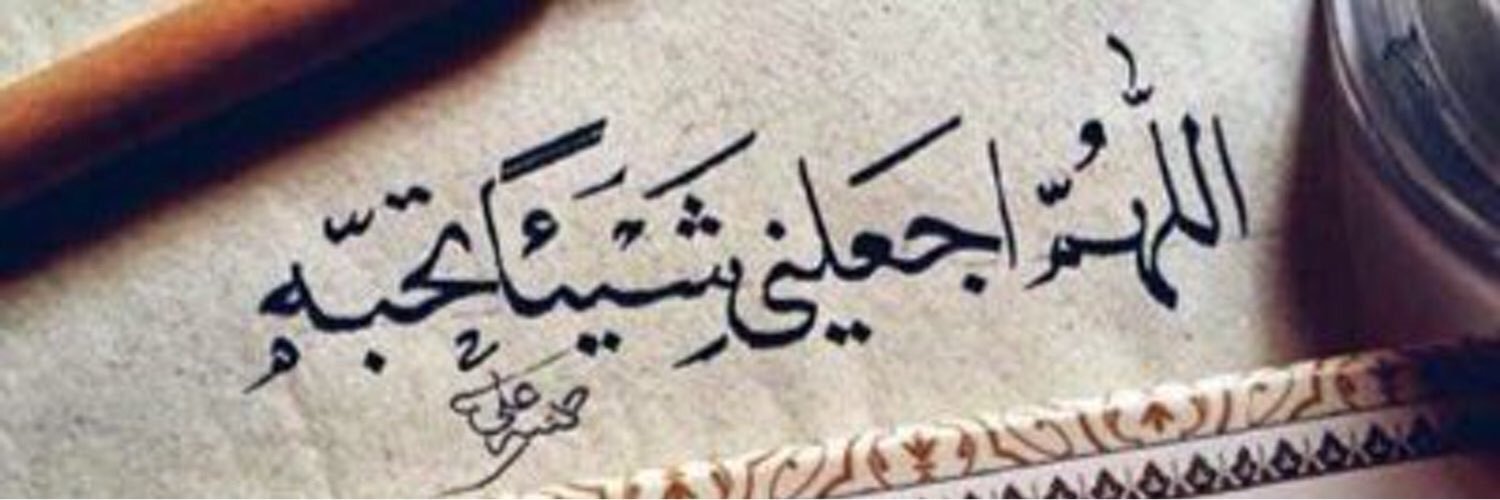 اللّٰهُمَّ اجعَلني شَيْئاً تحبّه